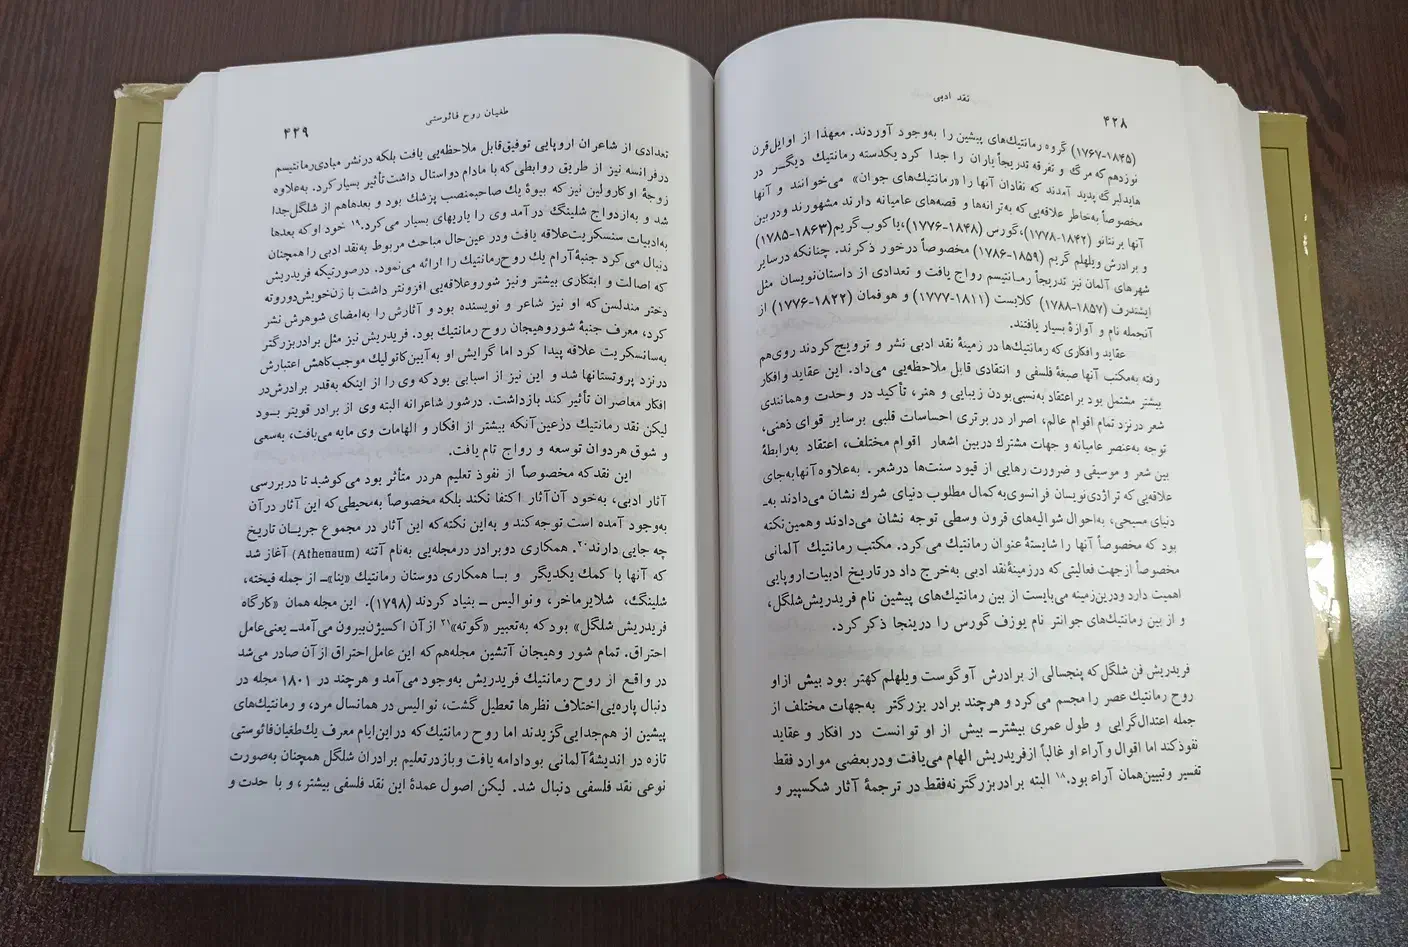 نقد ادبی
۴۲۸
(۱۸۴۵-۱۷۶۷) گروه رمانتیك‌های پیشین را به‌وجود آوردند. معهذا از اوایل‌قرن
نوزدهم که مرگ و تفرقه تدریجاً یاران را جدا کرد یکدسته رمانتیك دیگر در
هایدلبرگ پدید آمدند که نقادان آنها را «رمانتیك‌های جوان» می‌خوانند و آنها
مخصوصاً به‌خاطر علاقه‌یی که به‌ترانه‌ها و قصه‌های عامیانه دارند مشهورند ودربین
آنها برنتانو (۱۸۴۲-۱۷۷۸)، گورس (۱۸۴۸-۱۷۷۶)، یاکوب گریم (۱۸۶۳-۱۷۸۵)
و برادرش ویلهلم گریم (۱۸۵۹-۱۷۸۶) مخصوصاً درخور ذکرند. چنانکه درسایر
شهرهای آلمان نیز تدریجاً رمـانتیسم رواج یافت و تعدادی از داستان‌نویسان مثل
ایشندرف (۱۸۵۷-۱۷۸۸) کلایست (۱۸۱۱-۱۷۷۷) و هوفمان (۱۸۲۲-۱۷۷۶) از
آنجمله نام و آوازهٔ بسیار یافتند.
عقاید وافکاری که رمانتیك‌ها در زمینهٔ نقد ادبی نشر و ترویج کردند روی‌هم
رفته به‌مکتب آنها صبغهٔ فلسفی و انتقادی قابل ملاحظه‌یی می‌داد. این عقاید وافکار
بیشتر مشتمل بود براعتقاد به‌نسبی‌بودن زیبایی و هنر، تأکید در وحدت وهمانندی
شعر درنزد تمام اقوام عالم، اصرار در برتری احساسات قلبی برسایر قوای ذهنی،
توجه به‌عنصر عامیانه و جهات مشترك دربین اشعار اقوام مختلف، اعتقاد به‌رابطهٔ
بین شعر و موسیقی و ضرورت رهایی از قیود سنت‌ها درشعر. به‌علاوه آنهابه‌جای
علاقه‌یی که تراژدی‌نویسان فرانسوی به‌کمال مطلوب دنیای شرك نشان می‌دادند به‌ـ
دنیای مسیحی، به‌احوال شوالیه‌های قرون وسطی توجه نشان می‌دادند وهمین‌نکته
بود که مخصوصاً آنها را شایستهٔ عنوان رمانتیك می‌کرد. مکتب رمانتیك آلمانی
مخصوصاً ازجهت فعالیتی که درزمینهٔ نقد ادبی به‌خرج داد درتاریخ ادبیات‌اروپایی
اهمیت دارد ودرین‌زمینه می‌بایست از بین رمانتیك‌های پیشین نام فریدریش‌شلگل،
و از بین رمانتیك‌های جوانتر نام یوزف گورس را دراینجا ذکر کرد.
فریدریش فن شلگل که پنجسالی از برادرش آوگوست ویلهلم کهتر بود بیش ازاو
روح رمانتیك عصر را مجسم می‌کرد و هرچند برادر بزرگتر به‌جهات مختلف از
جمله اعتدال‌گرایی و طول عمری بیشترـ بیش از او توانست در افکار و عقاید
نفوذکند اما اقوال وآراء او غالباً ازفریدریش الهام می‌یافت ودربعضی موارد فقط
تفسیر وتبیین‌همان آراء بود.۱۸ البته برادربزرگترنه‌فقط در ترجمهٔ آثار شکسپیر و
طغیان روح فائوستی
۴۲۹
تعدادی از شاعران اروپایی توفیق‌قابل ملاحظه‌یی یافت بلکه درنشر مبادی‌رمانتیسم
درفرانسه نیز از طریق روابطی که با مادام دواستال داشت تأثیر بسیار کرد. به‌علاوه
زوجهٔ او کارولین نیز که بیوهٔ یك صاحبمنصب پزشك بود و بعدهاهم از شلگل‌جدا
شد و به‌ازدواج شلینگ درآمد وی را یاریهای بسیار می‌کرد.۱۹ خود اوکه بعدها
به‌ادبیات سنسکریت‌علاقه یافت ودر عین‌حال مباحث مربوط به‌نقد ادبی را همچنان
دنبال می‌کرد جنبهٔ آرام یك روح‌رمانتیك را ارائه می‌نمود. درصورتیکه فریدریش
که اصالت و ابتکاری بیشتر ونیز شوروعلاقه‌یی افزونتر داشت با زن‌خویش‌دوروته
دختر مندلسن‌که او نیز شاعر و نویسنده بود و آثارش را به‌امضای شوهرش نشر
کرد، معرف جنبهٔ شوروهیجان روح رمانتیك بود. فریدریش نیز مثل برادربزرگتر
به‌سانسکریت علاقه پیدا کرد اما گرایش او به‌آیین‌کاتولیك موجب‌کاهش اعتبارش
درنزد پروتستانها شد و این نیز از اسبابی بودکه وی را از اینکه به‌قدر برادرش‌در
افکار معاصران تأثیر کند بازداشت. درشور شاعرانه البته وی از برادر قویتر بـود
لیکن نقد رمانتیك درعین‌آنکه بیشتر از افکار و الهامات وی مایه می‌یافت، به‌سعی
و شوق هردوان توسعه و رواج تام یافت.
این نقدکه مخصوصاً از نفوذ تعلیم هردر متأثر بود می‌کوشید تا دربررسی
آثار ادبی، به‌خود آن‌آثار اکتفا نکند بلکه مخصوصاً به‌محیطی‌که این آثار درآن
به‌وجود آمده است توجه کند و به‌این نکته‌که این آثار در مجموع جریـان تاریخ
چه جایی دارند.۲۰ همکاری دوبرادر درمجله‌یی به‌نام آتنه (Athenaum) آغاز شد
که آنها با کمك یکدیگر و بـا همکاری دوستان رمانتیك «ینا»ـ از جمله فیخته،
شلینگ، شلایرماخر، ونوالیس ـ بنیاد کردند (۱۷۹۸). این مجله همان «کارگاه
فریدریش شلگل» بودکه به‌تعبیر «گوته»۲۱ ازآن اکسیژن‌بیرون می‌آمدـ یعنی‌عامل
احتراق. تمام شور وهیجان آتشین مجله‌هم‌که این عامل‌احتراق ازآن صادر می‌شد
در واقع از روح رمانتیك فریدریش به‌وجود می‌آمد و هرچند در ۱۸۰۱ مجله در
دنبال پاره‌یی‌اختلاف نظرها تعطیل گشت، نوالیس در همانسال مرد، و رمانتیك‌های
پیشین از هم‌جدایی‌گزیدند اما روح رمانتیك‌که دراین‌ایام معرف یك‌طغیان‌فائوستی
تازه در اندیشهٔ آلمانی بودادامه یافت وبازدرتعلیم برادران شلگل همچنان به‌صورت
نوعی نقد فلسفی دنبال شد. لیکن اصول عمدهٔ این نقد فلسفی بیشتر، و با حدت و